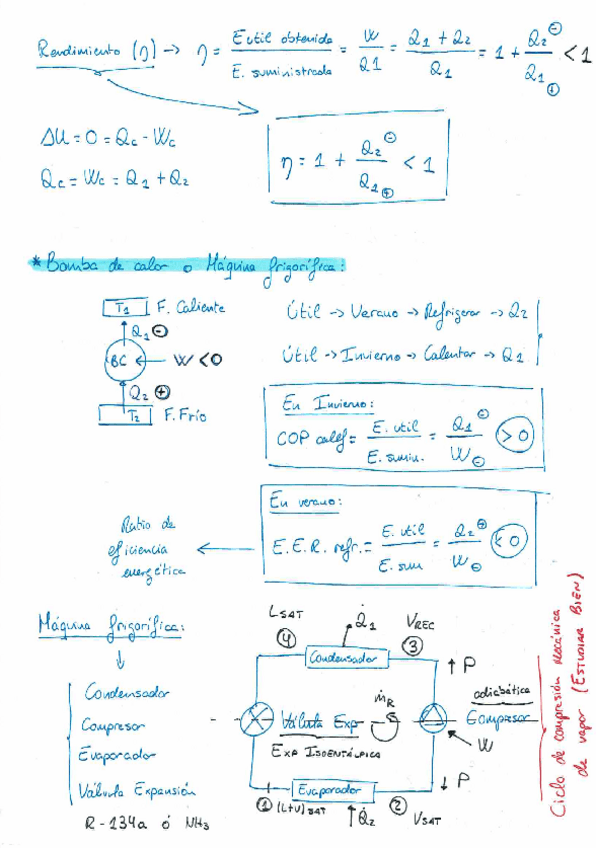 Rendimiento (η) → η = E útil obtenida / E. suministrada = W / Q1 = Q1 + Q2 / Q1 = 1 + Q2 ⊖ / Q1 ⊕ < 1
ΔU = 0 = Qc - Wc
Qc = Wc = Q1 + Q2
η = 1 + Q2 ⊖ / Q1 ⊕ < 1
* Bomba de calor o Máquina frigorífica:
T1 F. Caliente
Q1 ⊖
BC ← W < 0
Q2 ⊕
T2 F. Frío
Útil → Verano → Refrigerar → Q2
Útil → Invierno → Calentar → Q1
En Invierno:
COP calef = E. útil / E. sumin. = Q1 ⊖ / W ⊖ > 0
En verano:
E.E.R. refr. = E. útil / E. sum = Q2 ⊕ / W ⊖ < 0
Ratio de
eficiencia
energética
Máquina frigorífica:
Condensador
Compresor
Evaporador
Válvula Expansión
R-134a ó NH3
LSAT
Q̇1
VREC
4
Condensador
3
↑ P
ṁR
adiabática
Válvula Exp
Compresor
Exp Isoentálpica
W
↓ P
Evaporador
1 (L+V)SAT
Q̇2
2
VSAT
Ciclo de compresión mecánica
de vapor (ESTUDIAR BIEN)